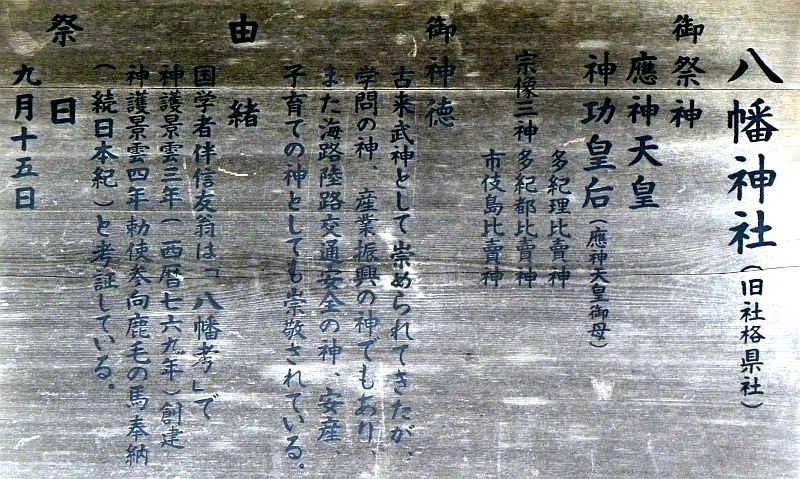 八幡神社（旧社格県社）
御祭神
應神天皇
神功皇后（應神天皇御母）
多紀理比賣神
宗像三神 多紀都比賣神
市伎島比賣神
御神徳
古来武神として崇められてきたが、
学問の神、産業振興の神でもあり、
また海路陸路交通安全の神、安産、
子育ての神としても崇敬されている。
由緒
国学者伴信友翁は「八幡考」で
神護景雲三年（西暦七六九年）創建
神護景雲四年勅使参向鹿毛の馬奉納
（続日本紀）と考証している。
祭日
九月十五日